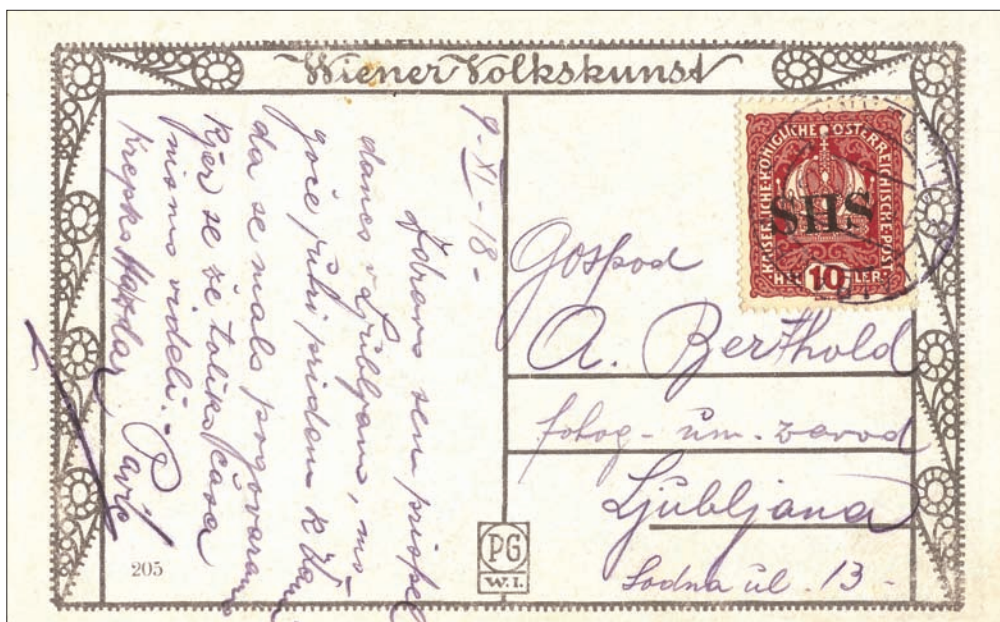 Wiener Volkskunst
9-XI-18-
Zdravo sem prispel
danes v Ljubljano, mo-
goče jutri pridem k Vam
da se malo pogovaramo
kjer se že toliko časa
nismo videli.
Krepko Nazdar Pavlo
205
PG
W.I.
KAISERLICHE KÖNIGLICHE ÖSTERREICHISCHE POST
SHS
10
HELLER
Gospod
A. Berthold
fotog- um. zavod
Ljubljana
Sodna ul. 13-